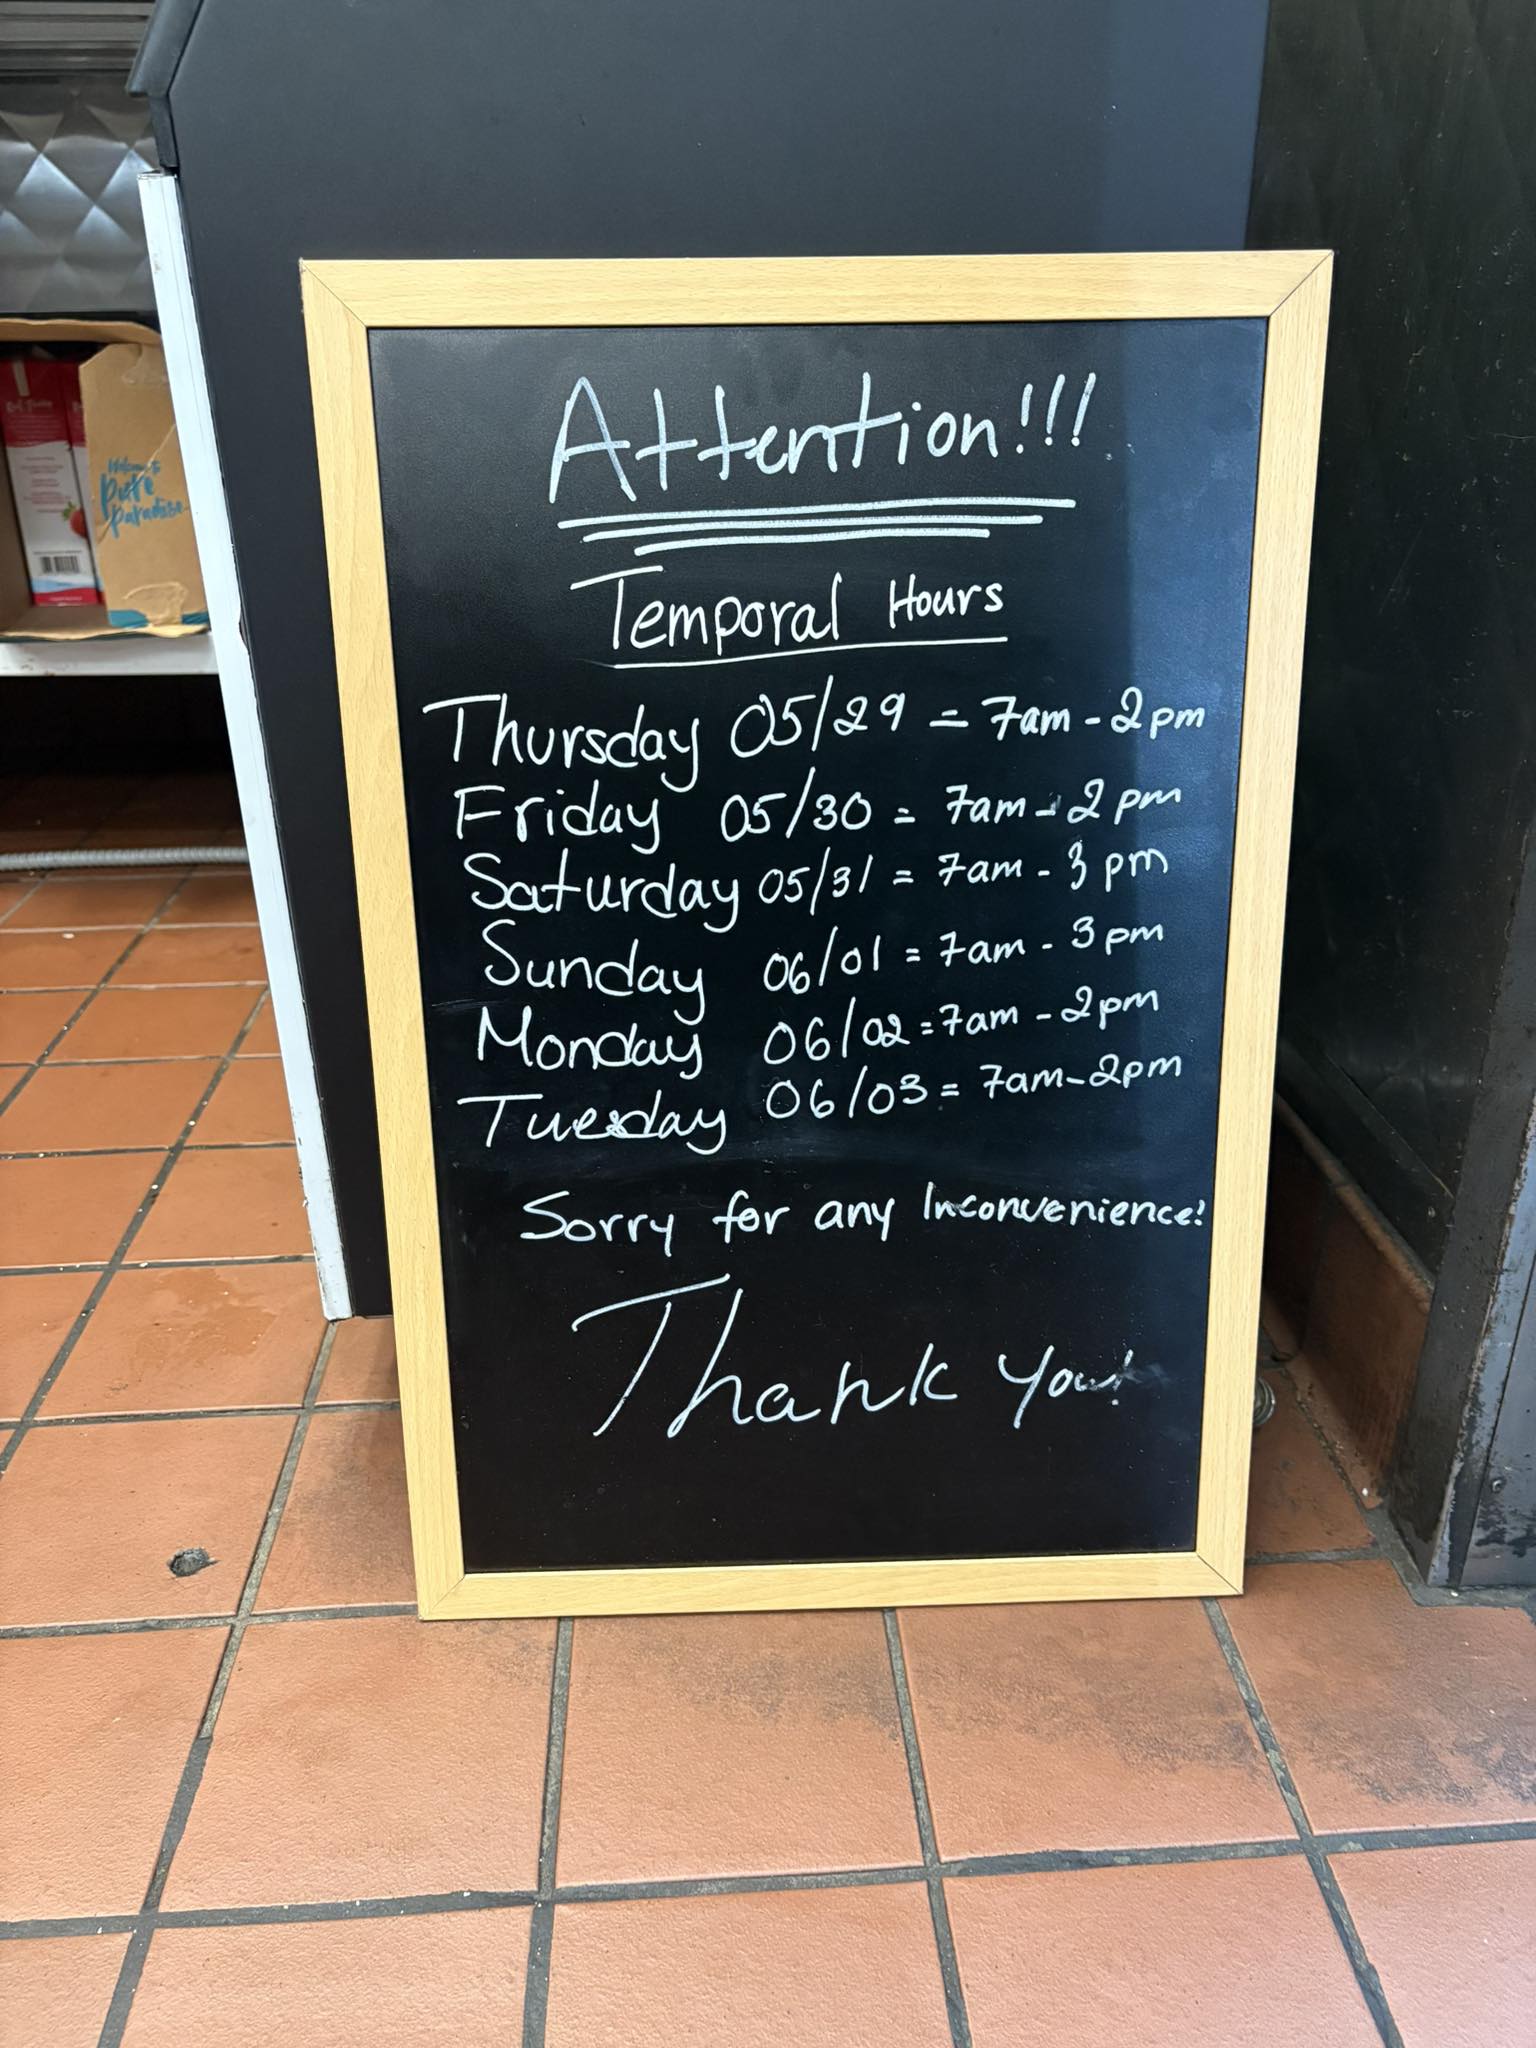 Attention!!!
Temporal Hours
Thursday 05/29 = 7am - 2pm
Friday 05/30 = 7am - 2pm
Saturday 05/31 = 7am - 3pm
Sunday 06/01 = 7am - 3pm
Monday 06/02 = 7am - 2pm
Tuesday 06/03 = 7am - 2pm
Sorry for any Inconvenience!
Thank you!
Welcome to
Pure
Paradise